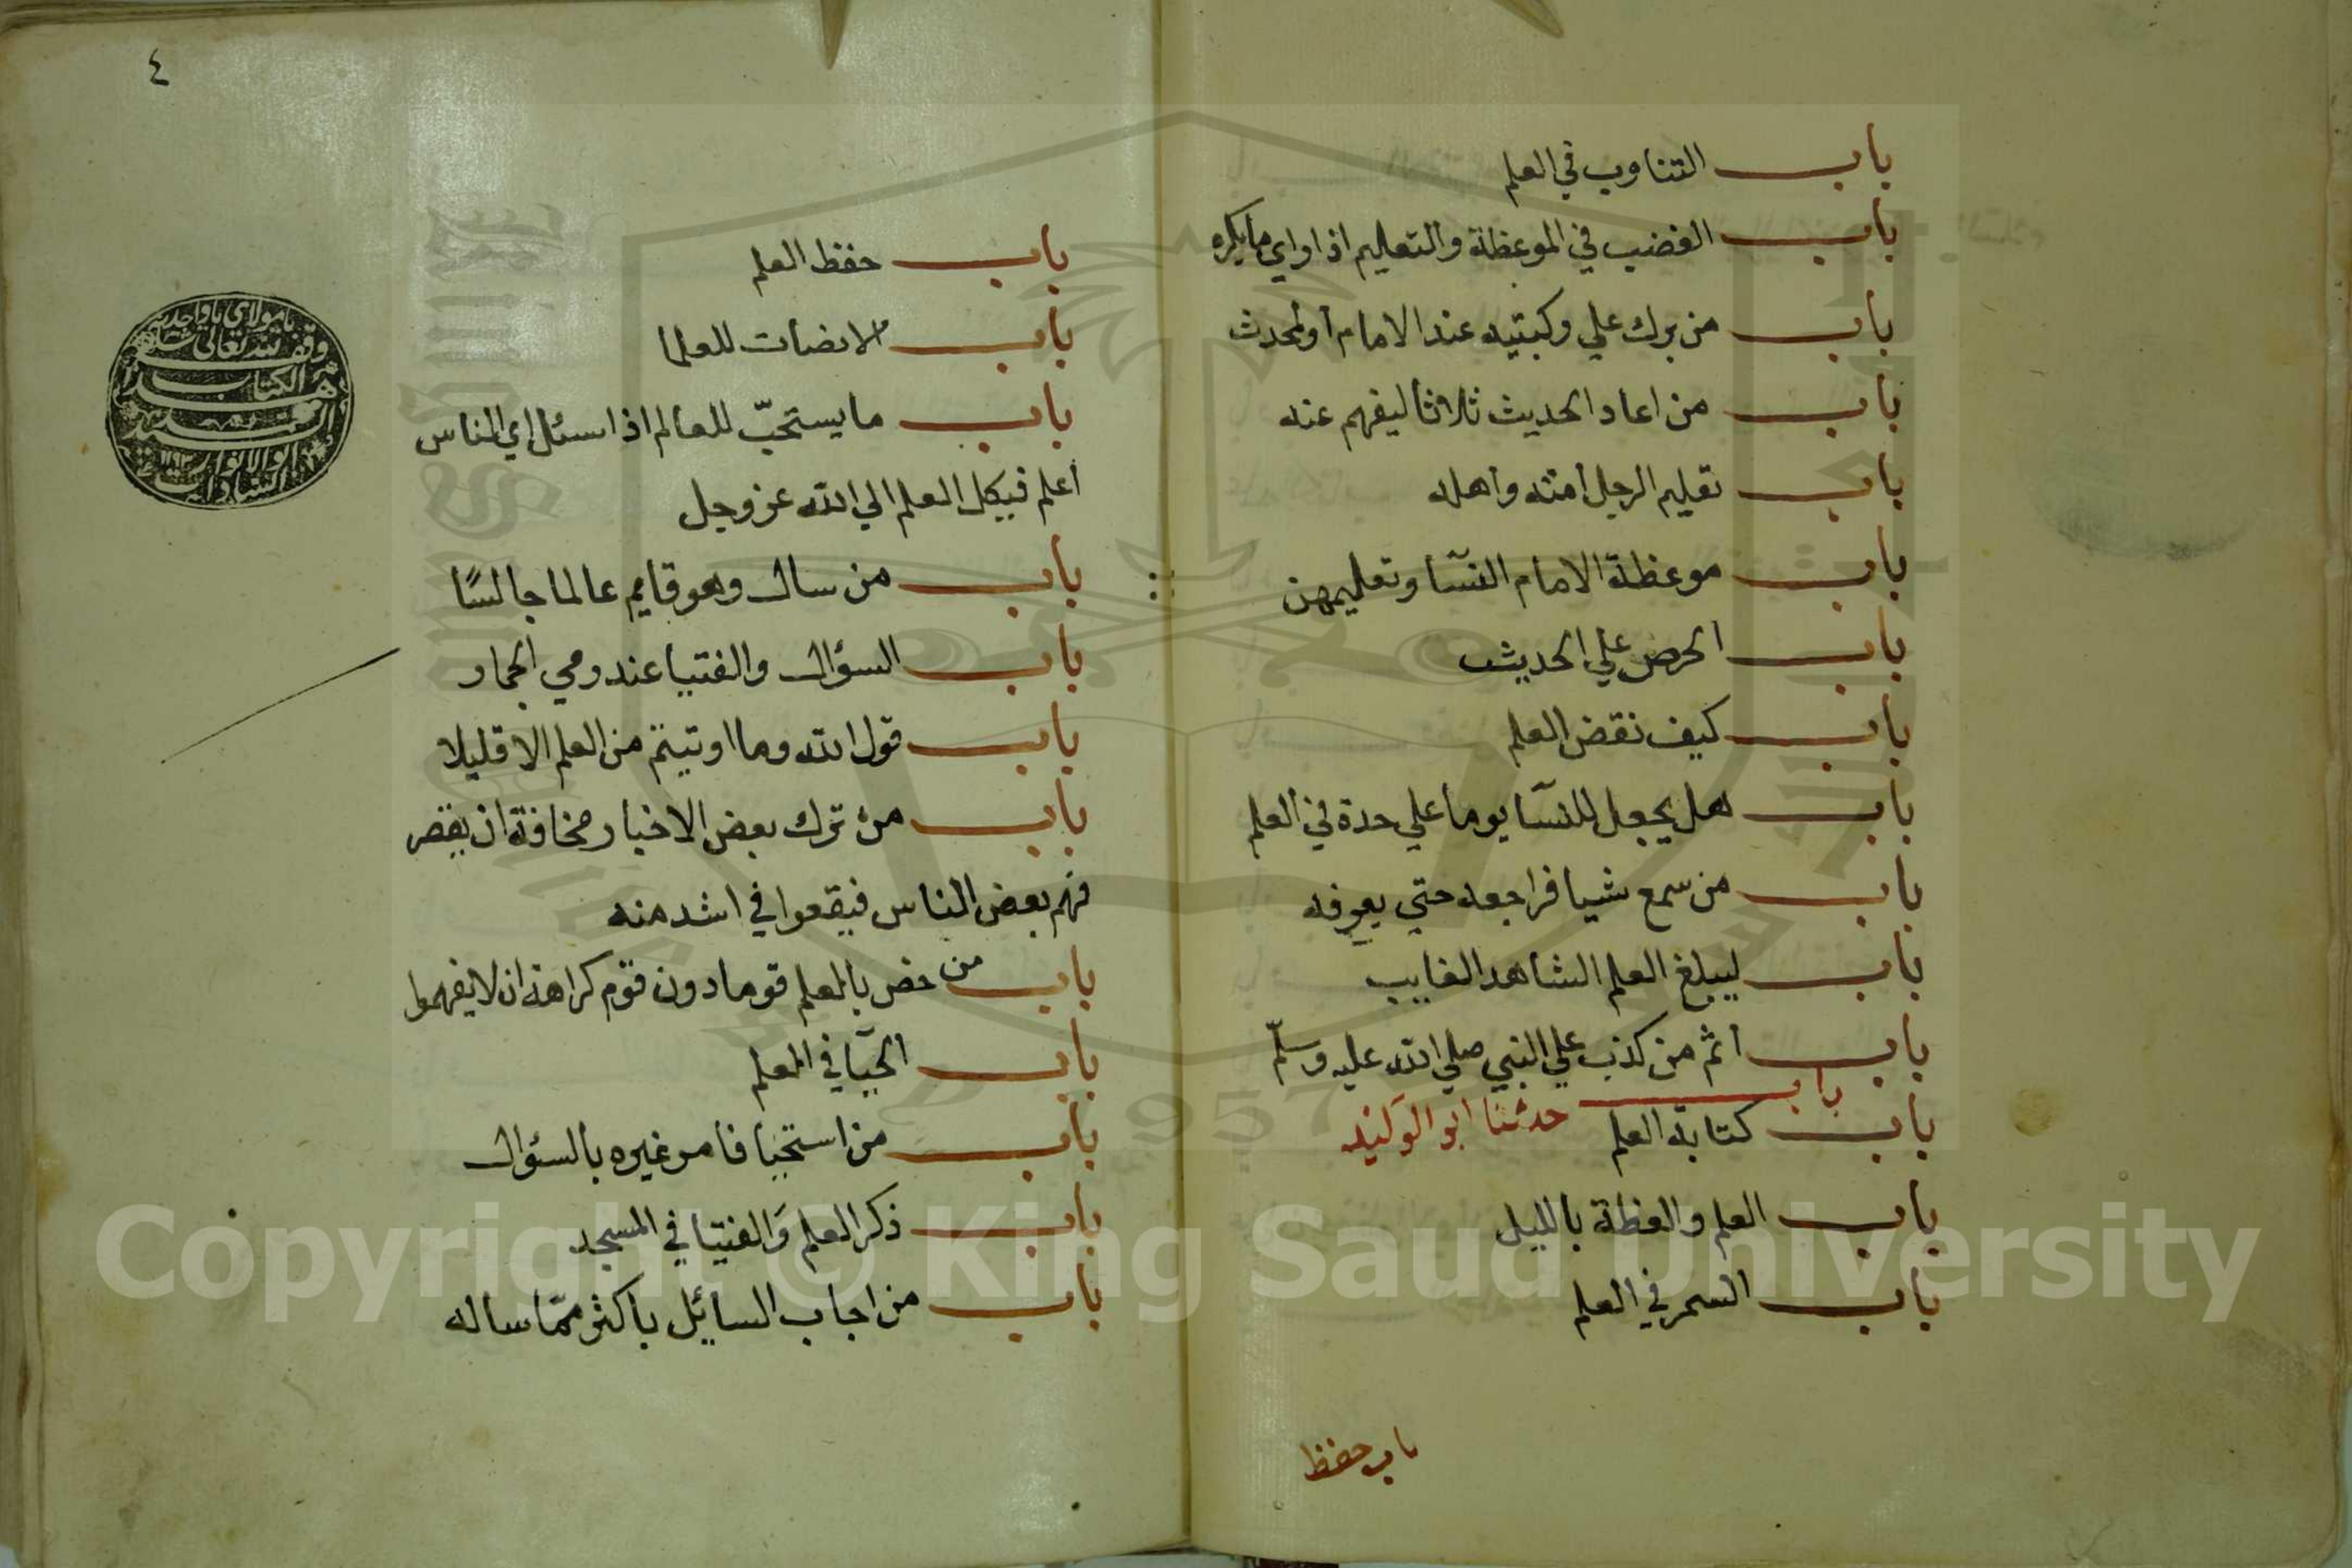 باب التناوب في العلم
باب الغضب في الموعظة والتعليم اذا راي ما يكره
باب من برك علي ركبتيه عند الامام أو المحدث
باب من اعاد الحديث ثلاثا ليفهم عنه
باب تعليم الرجل أمته واهله
باب موعظة الامام النسآ وتعليمهن
باب الحرص علي الحديث
باب كيف نقض العلم
باب هل يجعل للنسآ يوما علي حدة في العلم
باب من سمع شيا فراجعه حتي يعرفه
باب ليبلغ العلم الشاهد الغايب
باب اثم من كذب علي النبي صلي الله عليه وسلّم
باب كتابة العلم باب حدثنا ابو الوليد
باب العلم والعظة بالليل
باب السمر في العلم
باب حفظ
٤
باب حفظ العلم
باب الانصات للعلما
باب ما يستحبّ للعالم اذا سئل اي الناس
أعلم فيكل العلم الي الله عز وجل
باب من سال وهو قايم عالما جالسًا
باب السؤال والفتيا عند رمي الجمار
باب قول الله وما اوتيتم من العلم الا قليلا
باب من ترك بعض الاخبار مخافة ان يقصر
فهم بعض الناس فيقعوا في اشد منه
باب من خص بالعلم قوما دون قوم كراهة ان لا يفهموا
باب الحيآ في العلم
باب من استحيا فامر غيره بالسؤال
باب ذكر العلم وَالفتيا في المسجد
باب من اجاب السائل باكثر ممّا ساله
وقف لله تعالى
الكتاب
Copyright © King Saud University
1957